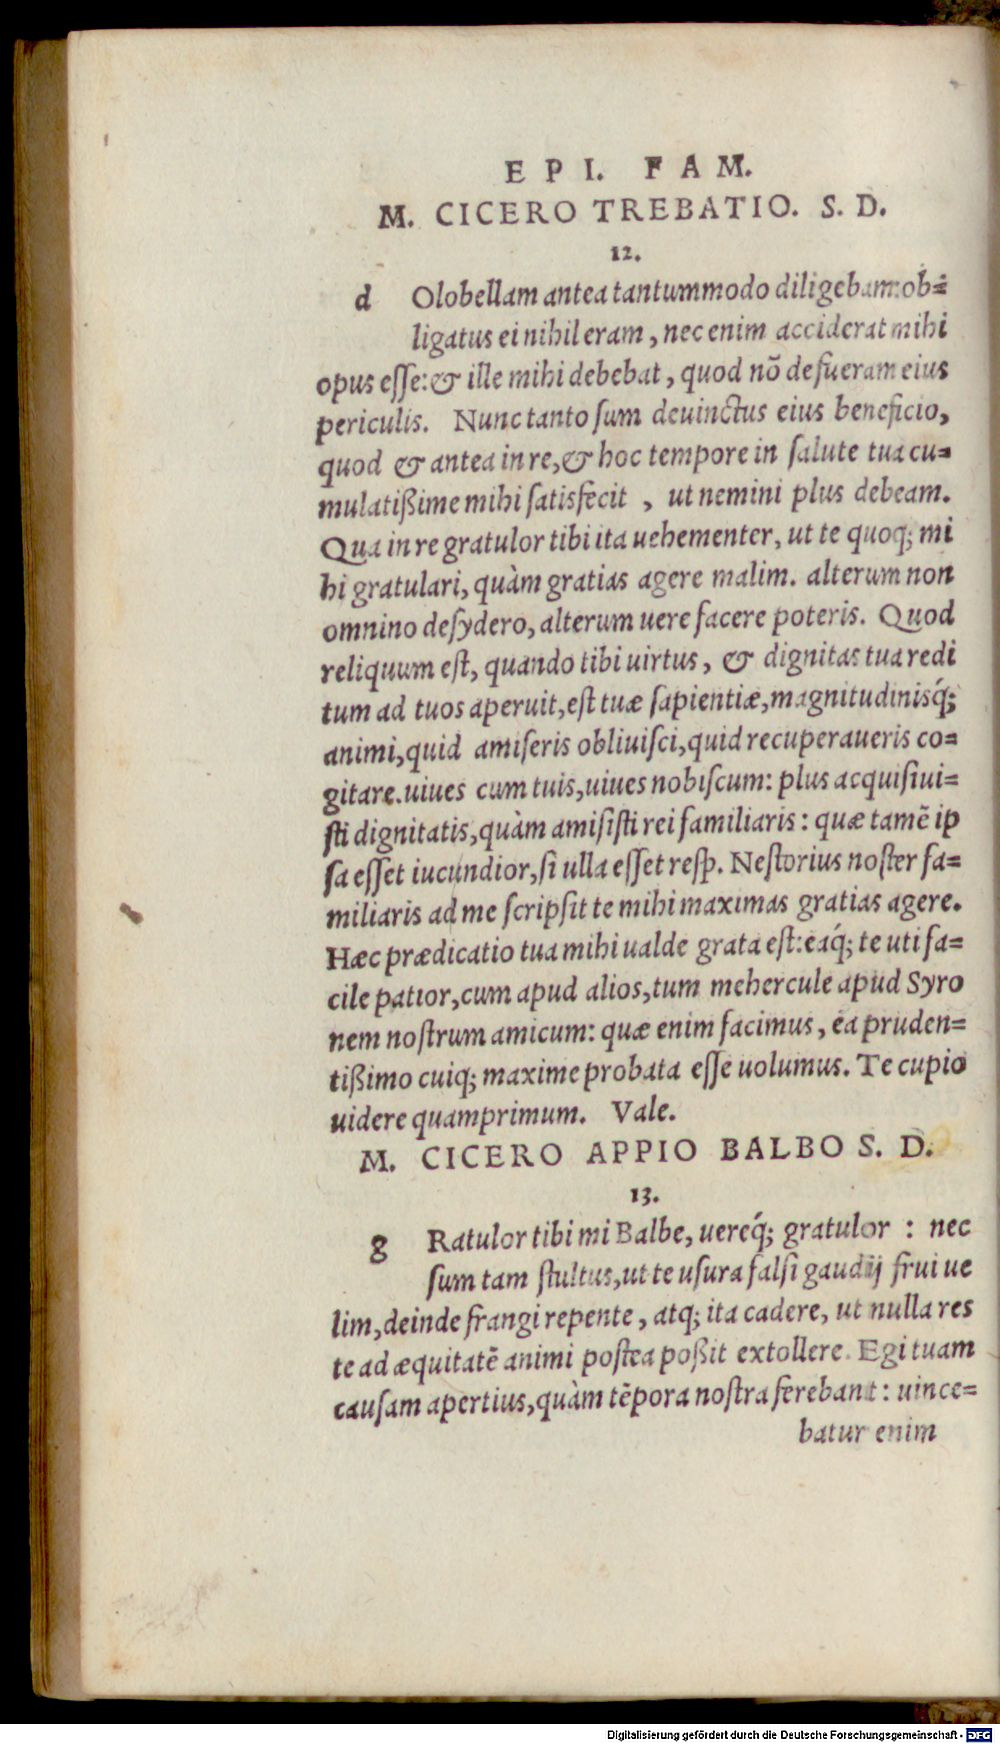 EPI. FAM.
M. CICERO TREBATIO. S. D.
12.
d Olobellam antea tantummodo diligebam:ob=
ligatus ei nihil eram, nec enim acciderat mihi
opus eſſe:& ille mihi debebat, quod nõ defueram eius
periculis. Nunc tanto ſum deuinctus eius beneficio,
quod & antea in re,& hoc tempore in ſalute tua cu=
mulatißime mihi ſatisfecit , ut nemini plus debeam.
Qua in re gratulor tibi ita uehementer, ut te quoq; mi
hi gratulari, quàm gratias agere malim. alterum non
omnino deſydero, alterum uere facere poteris. Quod
reliquum eſt, quando tibi uirtus, & dignitas tua redi
tum ad tuos aperuit,eſt tuæ ſapientiæ,magnitudinisq́;
animi,quid amiſeris obliuiſci,quid recuperaueris co=
gitare.uiues cum tuis,uiues nobiſcum: plus acquiſiui=
ſti dignitatis,quàm amiſiſti rei familiaris: quæ tamẽ ip
ſa eſſet iucundior,ſi ulla eſſet reſp. Neſtorius noſter fa=
miliaris ad me ſcripſit te mihi maximas gratias agere.
Hæc prædicatio tua mihi ualde grata eſt:eaq́; te uti fa=
cile patior,cum apud alios,tum mehercule apud Syro
nem noſtrum amicum: quæ enim facimus, ea pruden=
tißimo cuiq; maxime probata eſſe uolumus. Te cupio
uidere quamprimum. Vale.
M. CICERO APPIO BALBO S. D.
13.
g Ratulor tibi mi Balbe, uereq́; gratulor : nec
ſum tam ſtultus,ut te uſura falſi gaudij frui ue
lim,deinde frangi repente, atq; ita cadere, ut nulla res
te ad æquitatẽ animi poſtea poßit extollere. Egi tuam
cauſam apertius,quàm tẽpora noſtra ferebant: uince=
batur enim
Digitalisierung gefördert durch die Deutsche Forschungsgemeinschaft - DFG